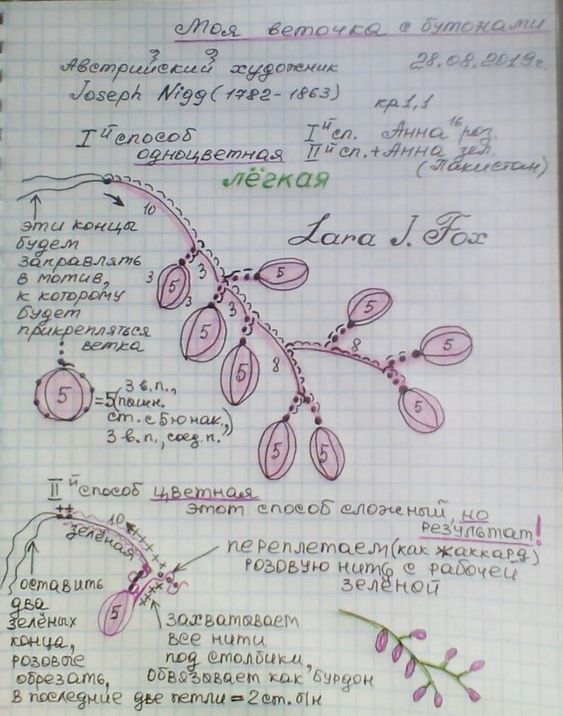 Моя веточка с бутонами
Австрийский художник 28.08.2019г.
Joseph Nigg (1782-1863)
кр 1,1
I й способ I й сп. Анна 16 роз.
одноцветная II й сп. + Анна зел.
(Пакистан)
лёгкая
10
Lara J. Fox
эти концы
будем
заправлять
в мотив,
к которому
будет
прикрепляться
ветка
3
5
3
3
5
5
3
5
8
8
5
5
5
5
5
5
= 5 (3 в.п.,
пышн.
ст. с 5ю нак.,
3 в.п., соед.п.)
II й способ цветная
этот способ сложный, но
результат!
10
зелёная
переплетаем (как жаккард)
розовую нить с рабочей
зелёной
5
оставить
два
зелёных
конца,
розовые
обрезать,
захватывает
все нити
под столбики,
обвязывает как бурдон
в последние две петли = 2 ст. б/н